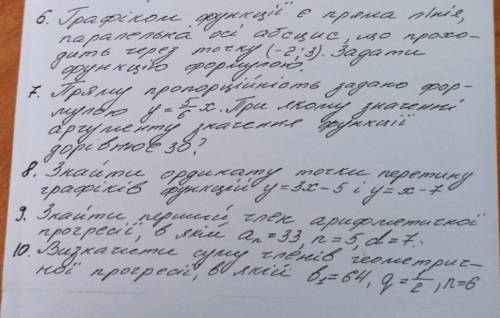 6. Графіком функції є пряма лінія,
паралельна осі абсцис, що прохо-
дить через точку (-2; 3). Задати
функцію формулою.
7. Пряму пропорційність задано фор-
мулою y = 5/6 x. При якому значенні
аргументу значення функції
дорівнює 30?
8. Знайти ординату точки перетину
графіків функцій y=3x-5 і y=x-7
9. Знайти перший член арифметичної
прогресії, в якій aₙ=33, n=5, d=7.
10. Визначити суму членів геометрич-
ної прогресії, в якій b₁=64, q=1/2, n=6